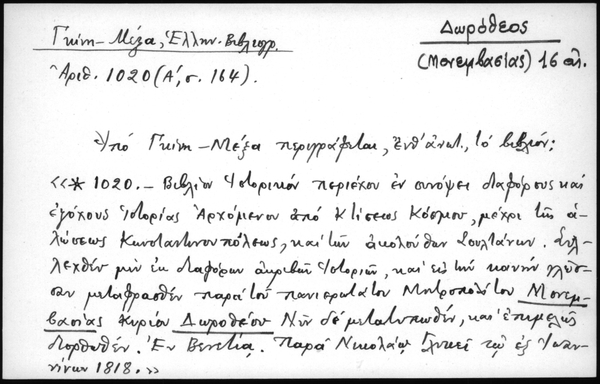 Γκίνη-Μέξα, Ἑλλην. Βιβλιογρ.
Ἀριθ. 1020 (Α', σ. 164).
Δωρόθεος
(Μονεμβασίας) 16 αἰ.
Ὑπό Γκίνη-Μέξα περιγράφεται, ἔνθ' ἀνωτ., τό βιβλίον:
«* 1020.- Βιβλίον Ἱστορικόν περιέχον ἐν συνόψει διαφόρους καί
ἐξόχους Ἱστορίας Ἀρχόμενον ἀπό Κτίσεως Κόσμου, μέχρι τῆς ἁ-
λώσεως Κωνσταντινουπόλεως, καί τῶν ἀκολούθων Σουλτάνων. Συλ-
λεχθέν μέν ἐκ διαφόρων ἀκριβῶν Ἱστοριῶν, καί εἰς τήν κοινήν γλῶσ-
σαν μεταφρασθέν παρά τοῦ πανιερωτάτου Μητροπολίτου Μονεμ-
βασίας Κυρίου Δωροθέου Νῦν δέ μετατυπωθέν, καί ἐπιμελῶς
διορθωθέν. Ἐν Βενετίᾳ. Παρά Νικολάῳ Γλυκεῖ τῷ ἐξ Ἰωαν-
νίνων 1818.»